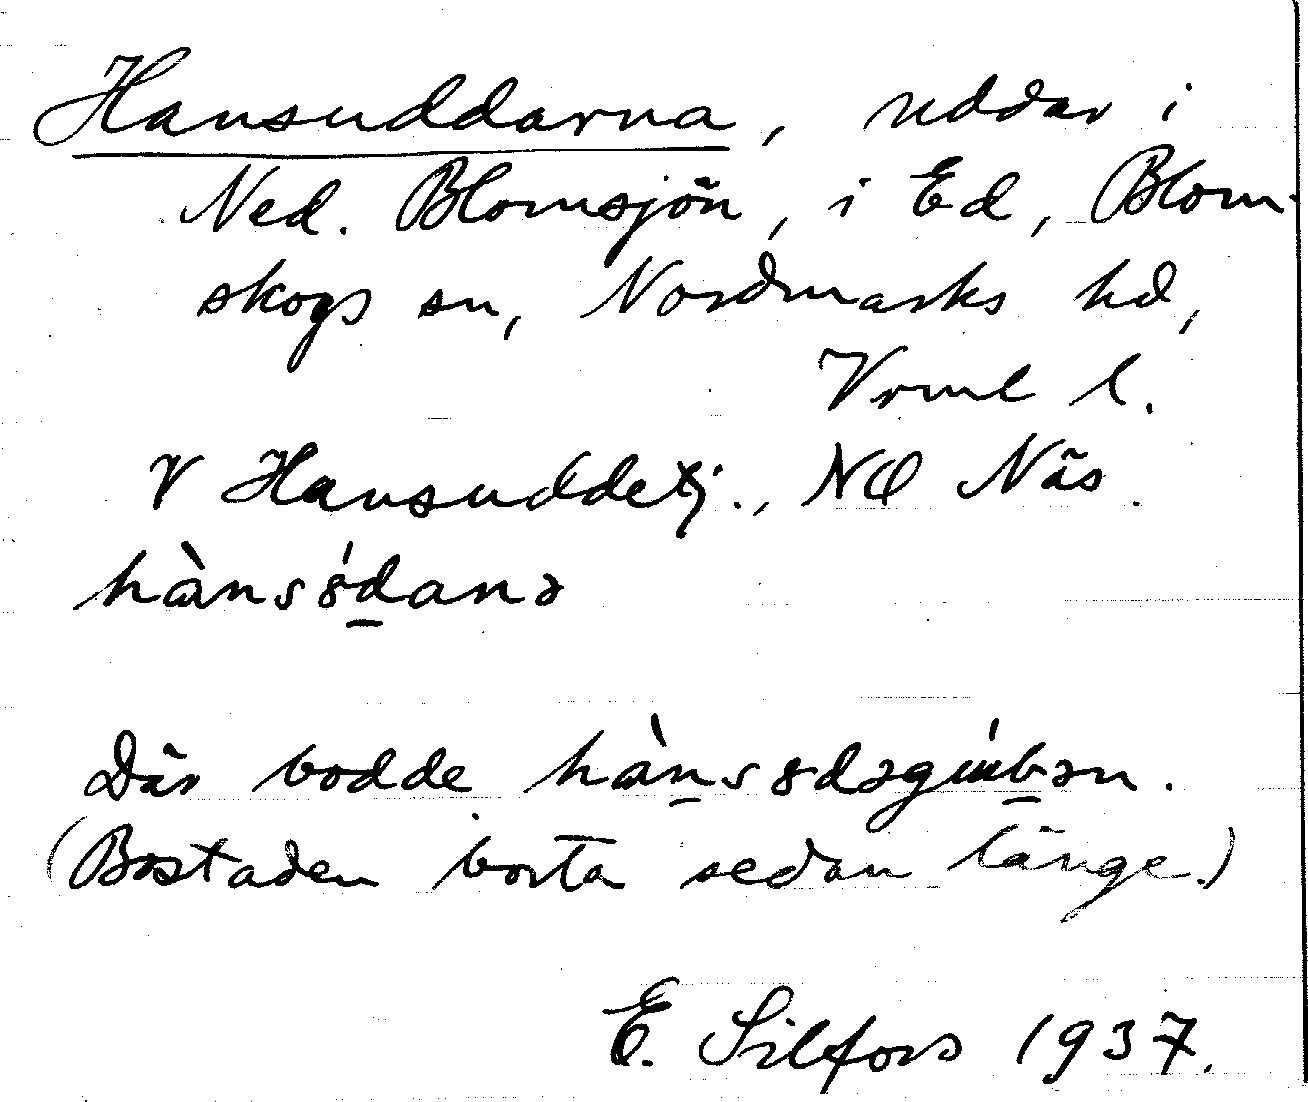 Hansuddarna, uddar i
Ned. Blomsjön, i Ed, Blom-
skogs sn, Nordmarks hd,
Vrml l.
V Hansuddetj., NO Näs.
hànsȣ́d̲anə
Där bodde hàn̲sȣdəgúb̲ən.
(Bostaden borta sedan länge.)
E. Silfors 1937.